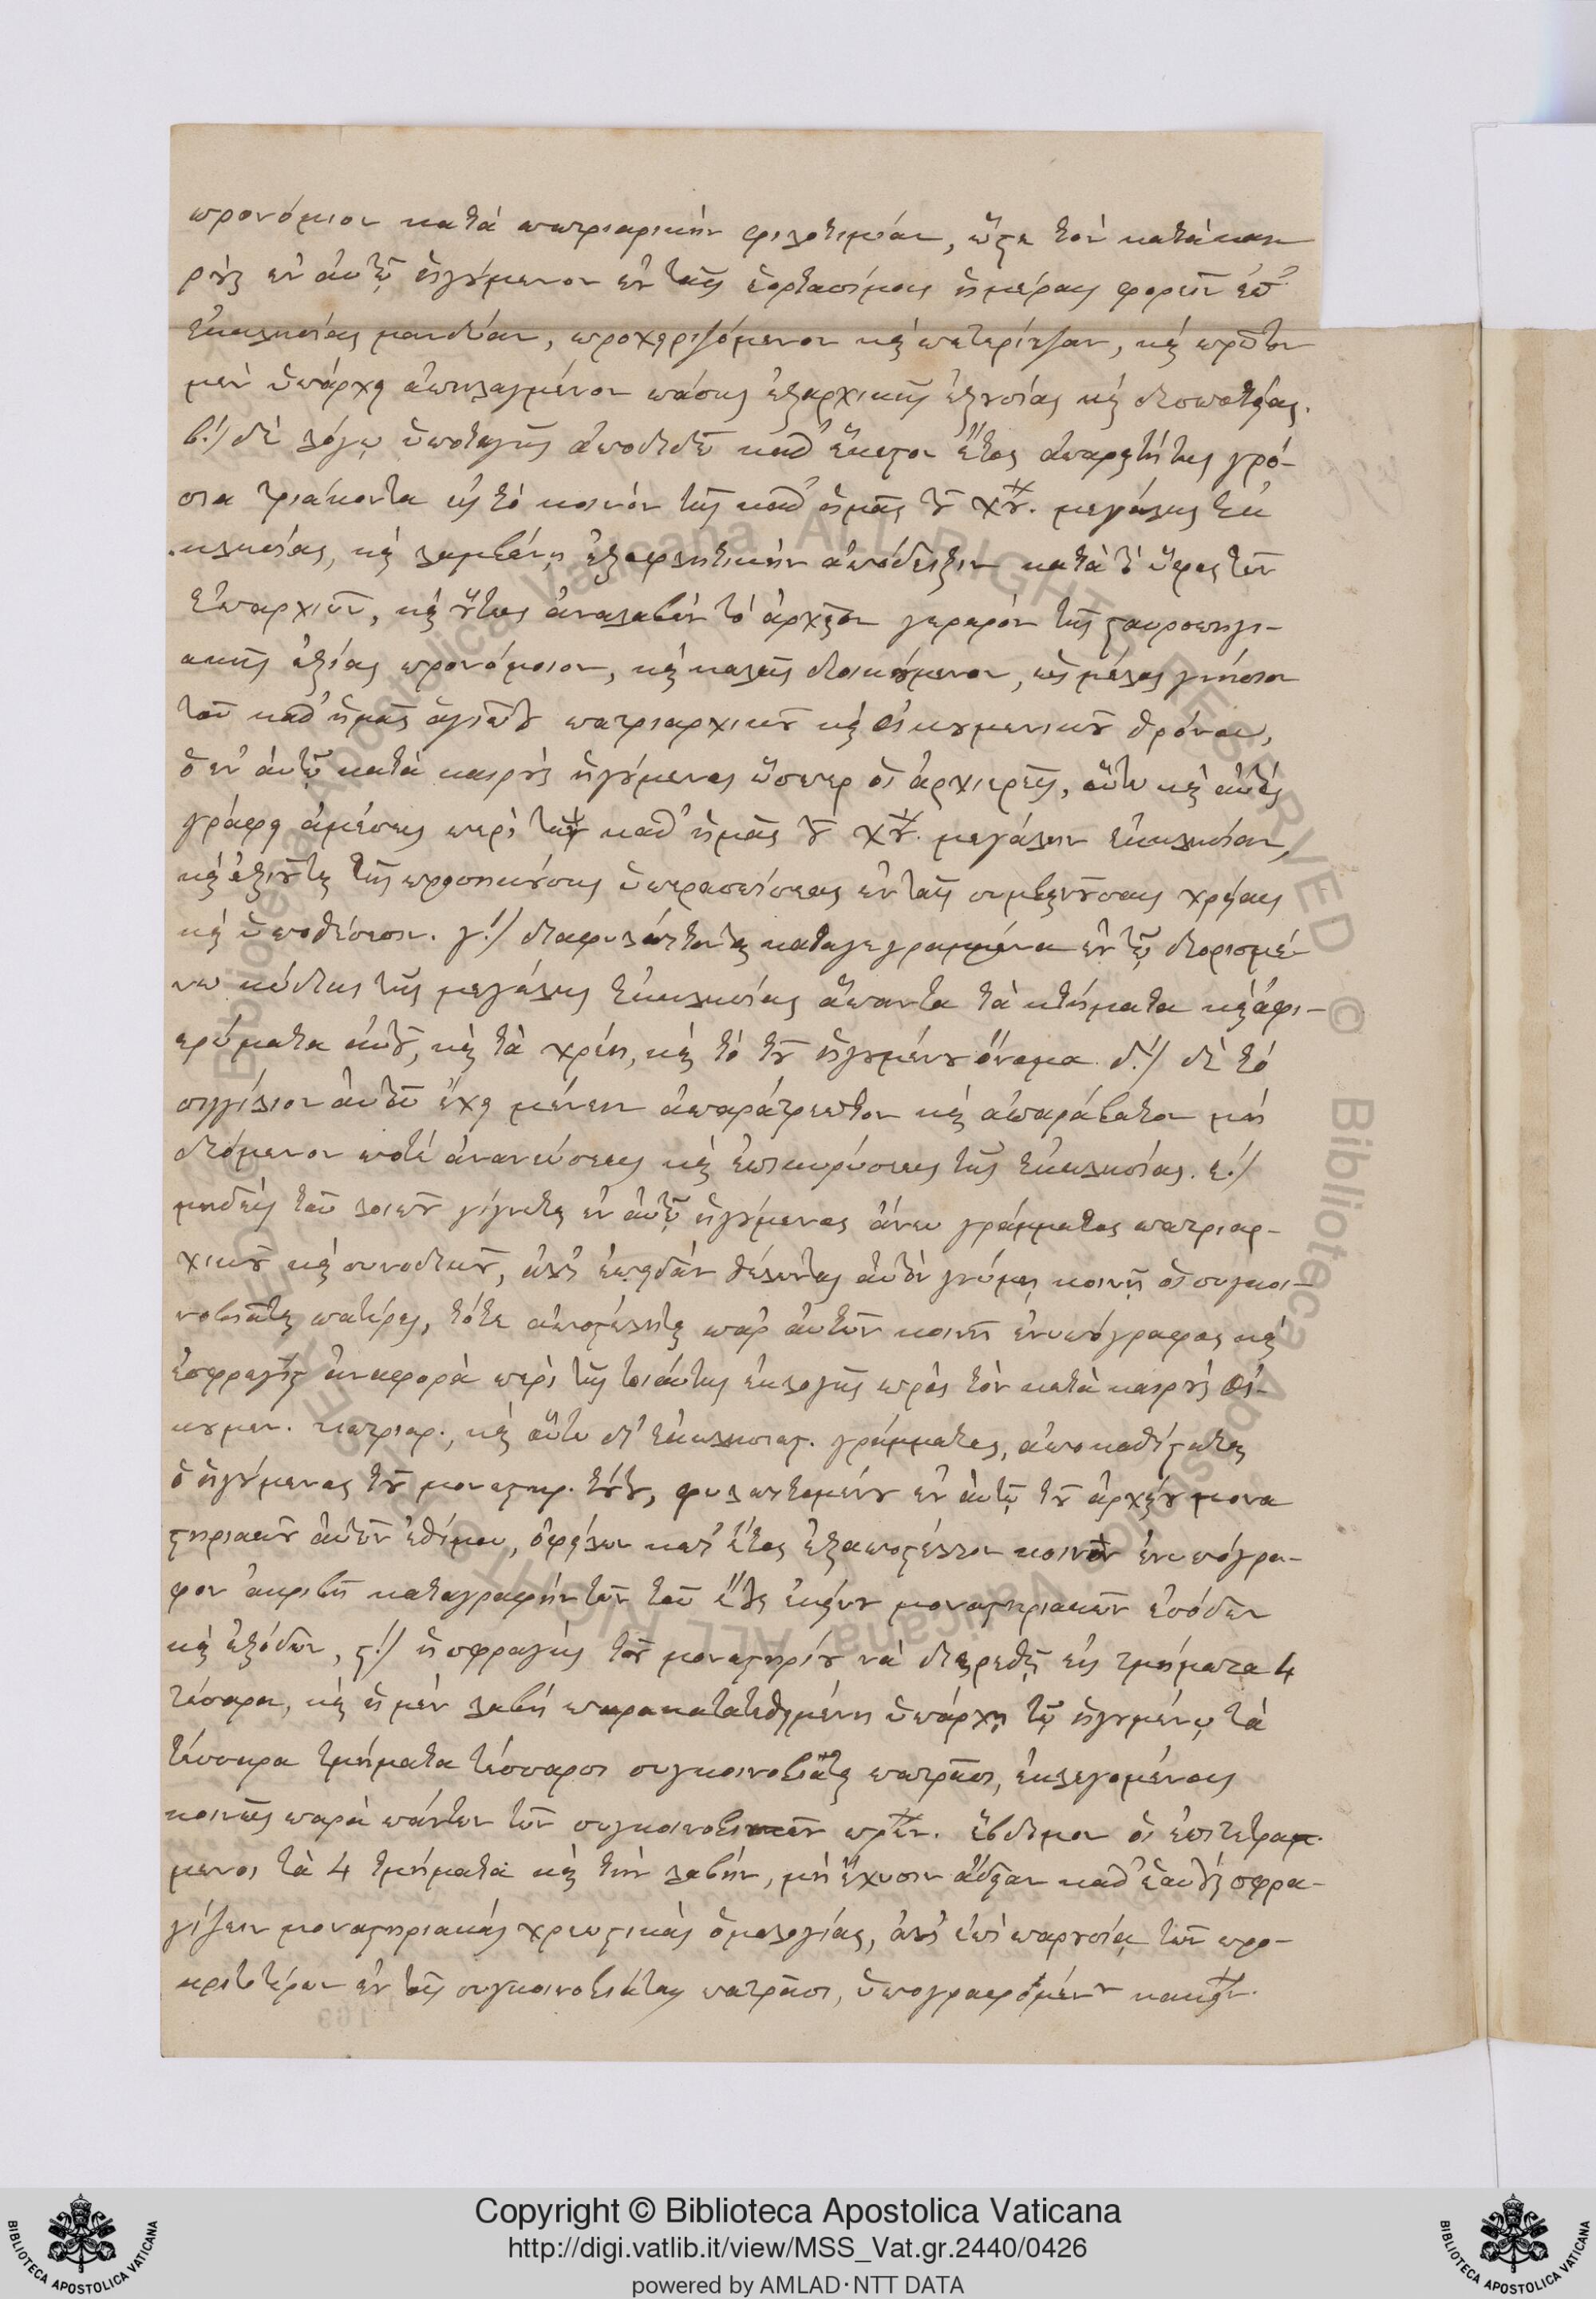 προνόμιον κατὰ πατριαρικὴν φιλοτιμίαν, ὥςε τὸν κατὰ και
ροὺς ἐν αὐτῷ ἡγούμενον ἐν ταῖς ἑορτασίμοις ἡμέραις φορεῖν ἐπ'
ἐκκλησίας μανδύαν, προχειριζόμενον καὶ πατερίτζαν, καὶ πρῶτον
μὲν ὑπάρχῃ ἀπηλαγμένον πάσης ἐξαρχικῆς ἐξουσίας καὶ δεσποτείας.
β!/ δὲ λόγῳ ὑποταγῆς ἀποδιδοῖ καθ' ἕκαςον ἔτος ἀπαραιτήτως γρό-
σια τριάκοντα εἰς τὸ κοινὸν τῆς καθ' ἡμᾶς τοῦ Χοῦ. μεγάλης Ἐκ
κλησίας, καὶ λαμβάνῃ ἐξοφλητικὴν ἀπόδειξιν κατὰ τὸ ὕφος τῶν
Ἐπαρχιῶν, καὶ οὕτως ἀναλαβὸν τὸ ἀρχαῖον γεραρὸν τῆς ςαυροπηγι-
ακῆς ἀξίας προνόμοιον, καὶ καλῶς διοικούμενον, ὡς μέλος γνήσιον
τοῦ καθ' ἡμᾶς ἁγιωτ πατριαρχικοῦ καὶ Οἰκουμενικοῦ θρόνου,
ὁ ἐν αὐτῷ κατὰ καιροὺς ἡγούμενος ὥσπερ οἱ ἀρχιερεῖς, οὕτω καὶ αὐτὸς
γράφῃ ἀμέσως περὶ τὴν καθ' ἡμᾶς τοῦ Χοῦ. μεγάλην Ἐκκλησίαν,
καὶ ἀξιοῦται τῆς προσηκούσης ὑπερασπίσεως ἐν ταῖς συμβαινούσαις χρείαις
καὶ ὑποθέσεσιν. γ!/ διαφυλάττονται καταγεγραμμένα ἐν τῷ διορισμέ-
νῳ κώδικι τῆς μεγάλης Ἐκκλησίας ἅπαντα τὰ κτήματα καὶ ἀφι-
ερώματα αὐτοῦ, καὶ τὰ χρέη, καὶ τὸ τοῦ ἡγουμένου ὄνομα. δ!/ δὲ τὸ
σιγίλιον αὐτοῦ ἔχῃ μένειν ἀπαράτρεπτον καὶ ἀπαράβατον μὴ
δεόμενον ποτὲ ἀνανεώσεως καὶ ἐπικυρώσεως τῆς Ἐκκλησίας. ε!/
μηδεὶς τοῦ λοιποῦ γίγνηται ἐν αὐτῷ ἡγούμενος ἄνευ γράμματος πατριαρ-
χικοῦ καὶ συνοδικοῦ, ἀλλ' ἐπειδὰν θέλωντες αὐτὸν γνώμῃ κοινῇ οἱ συγκοι-
νοβιᾶται πατέρες, τότε ἀποςέληται παρ' αὐτῶν κοινῇ ἐνυπόγραφος καὶ
ἐσφραγις ἀναφορὰ περὶ τῆς τοιαύτης ἐκλογῆς πρὸς τὸν κατὰ καιροὺς Οἰ-
κουμεν. πατριαρ., καὶ οὕτω δι' ἐκκλησιας. γράμματος, ἀποκαθίςαται
ὁ ἡγούμενος τοῦ μοναςηρ. τούτου, φυλαττομένου ἐν αὐτῷ τοῦ ἀρχαίου μονα
ςηριακοῦ αὐτῶν ἐθίμου, ὀφείλων κατ' ἔτος ἐξαποςέλλειν κοινὸν ἐνυπόγρα-
φον ἀκριβῆ καταγραφὴν τῶν τοῦ ἔτους ἐκείνου μοναςηριακῶν ἐσόδων
καὶ ἐξόδων, ς!/ ἡ σφραγὶς τοῦ μοναςηρίου νὰ διαιρεθῇ εἰς τμήματα 4
τέσαρα, καὶ ἡ μὲν λαβὴ παρακατατεθειμένη ὑπάρχῃ τῷ ἡγουμένῳ τὰ
τέσσαρα τμήματα τέσσαρσι συγκοινοβιάταις πατράσι, ἐκλεγομένοις
κοινῶς παρὰ πάντων τῶν συγκοινοβιατῶν πρων. ἕβδομον οἱ ἐπιτετραμ-
μένοι τὰ 4 τμήματα καὶ τὴν λαβὴν, μὴ ἔχωσιν ἄδειαν καθ' ἑαυτοὺς σφρα-
γίζειν μοναςηριακὰς χρεωςικὰς ὁμολογίας, ἀλλ' ἐπὶ παρουσίᾳ τῶν προ-
κριτοτέρων ἐν τοῖς συγκοινοβιάταις πατράσι, ὑπογραφομένων
Copyright © Biblioteca Apostolica Vaticana
http://digi.vatlib.it/view/MSS_Vat.gr.2440/0426
powered by AMLAD·NTT DATA